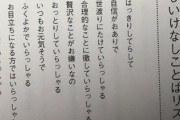 しいけなしことばリス
はっきりしてらして
自信がおありで
世渡りにたけていらっしゃる
合理的なことに徹していらっしゃる
贅沢なことがお嫌いなの
おっとりしていらっしゃる
いつもお元気そうで
ふくよかでいらっしゃる
お目立ちになる方ではいらっしゃ